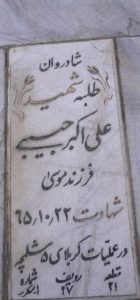 شادروان
طلبه شهید
علی اکبر حبیبی
فرزند موسی
شهادت ۶۵٫۱۰٫۲۲
در عملیات کربلای ۵ شلمچه
قطعه ردیف شماره
۲۱ ۱۷